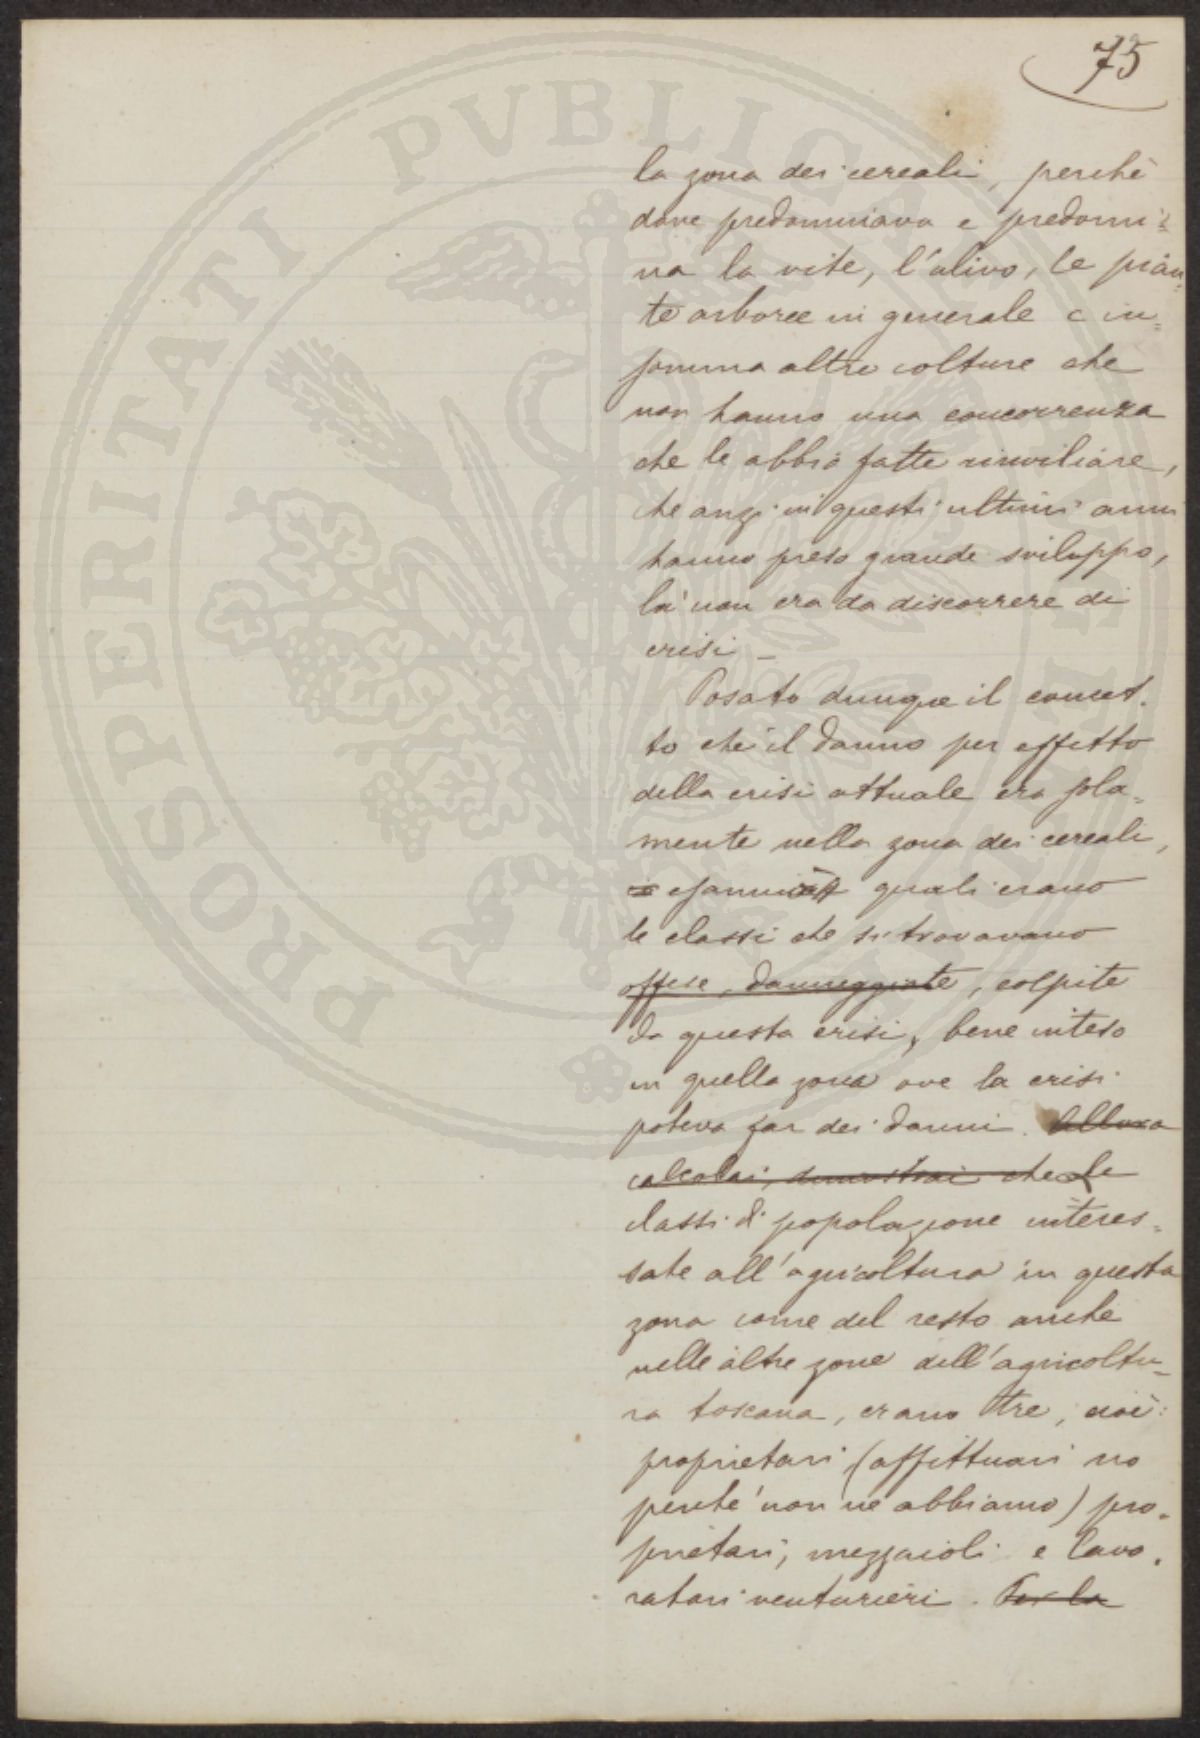 75
la zona dei cereali, perchè
dove predominava e predomi=
na la vite, l'ulivo, le pian=
te arboree in generale e in=
somma altre colture che
non hanno una concorrenza
che le abbia fatte rinviliare,
che anzi in questi ultimi anni
hanno preso grande sviluppo,
là non era da discorrere di
crisi _
Posato dunque il concet-
to che il danno per effetto
della crisi attuale era sola=
mente nella zona dei cereali,
esaminai quali erano
le classi che si trovavano
offese, danneggiate, colpite
da questa crisi, bene inteso
in quella zona ove la crisi
poteva far dei danni. Allora
calcolai, dimostrai che Le
classi di popolazione interes=
sate all'agricoltura in questa
zona come del resto anche
nelle altre zone dell'agricoltu=
ra toscana, erano tre, cioè:
proprietari (affittuari no
perchè non ne abbiamo) pro-
prietari, mezzaioli e lavo-
ratori venturieri. Per la
PROSPERITATI PVBLICAE